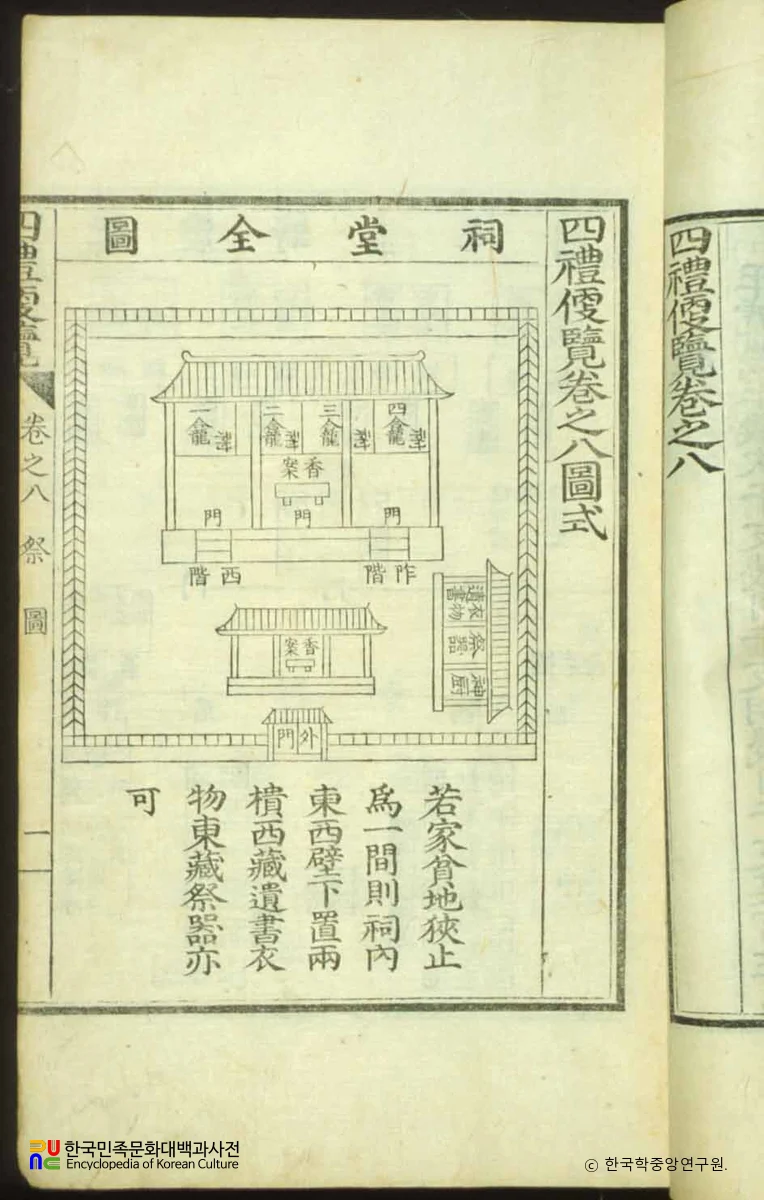 四禮便覽卷之八
四禮便覽卷之八圖式
祠堂全圖
四龕
三龕
二龕
一龕
香案
門
門
門
阼階
西階
遺書
衣物
祭器
神厨
香案
外門
若家貧地狹止
爲一間則祠內
東西壁下置兩
樻西藏遺書衣
物東藏祭器亦
可
四禮便覽 卷之八 祭 圖 一
한국민족문화대백과사전
Encyclopedia of Korean Culture
ⓒ 한국학중앙연구원.